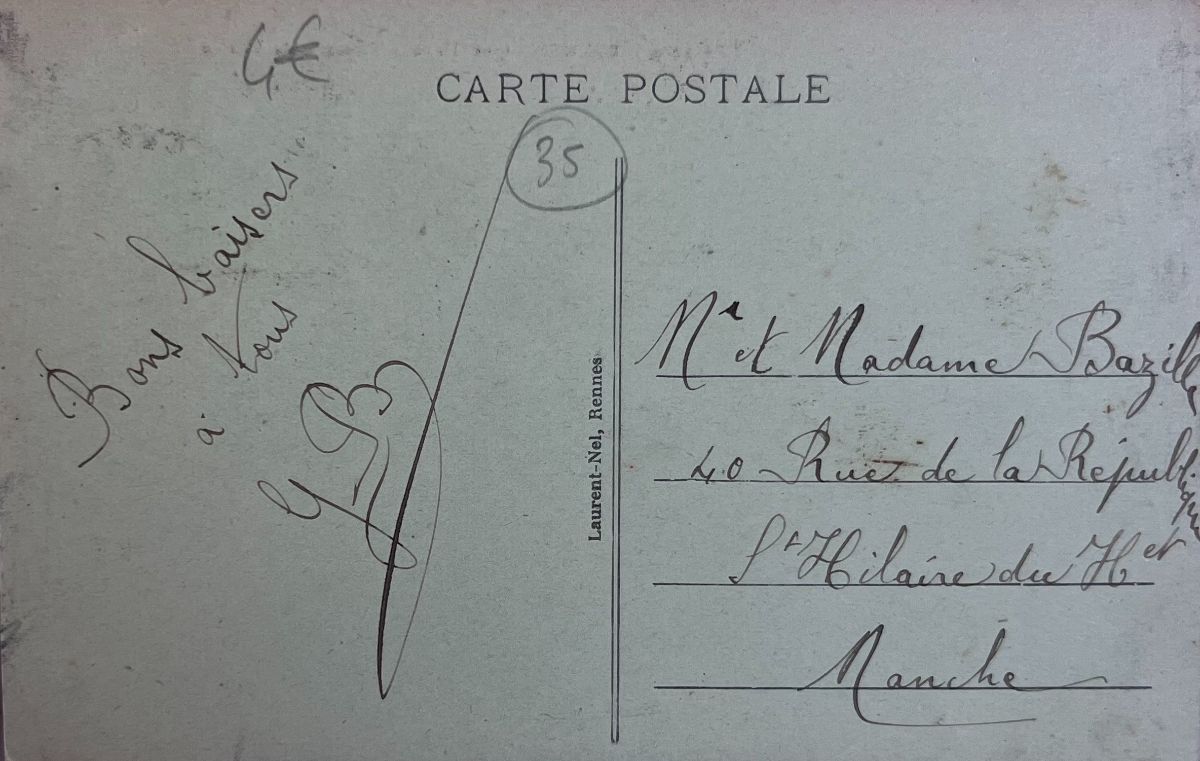 4€
CARTE POSTALE
35
Bons baisers
à tous
GB
Laurent-Nel, Rennes
Mr et Madame Bazille
40 Rue de la République
St Hilaire du Het
Manche